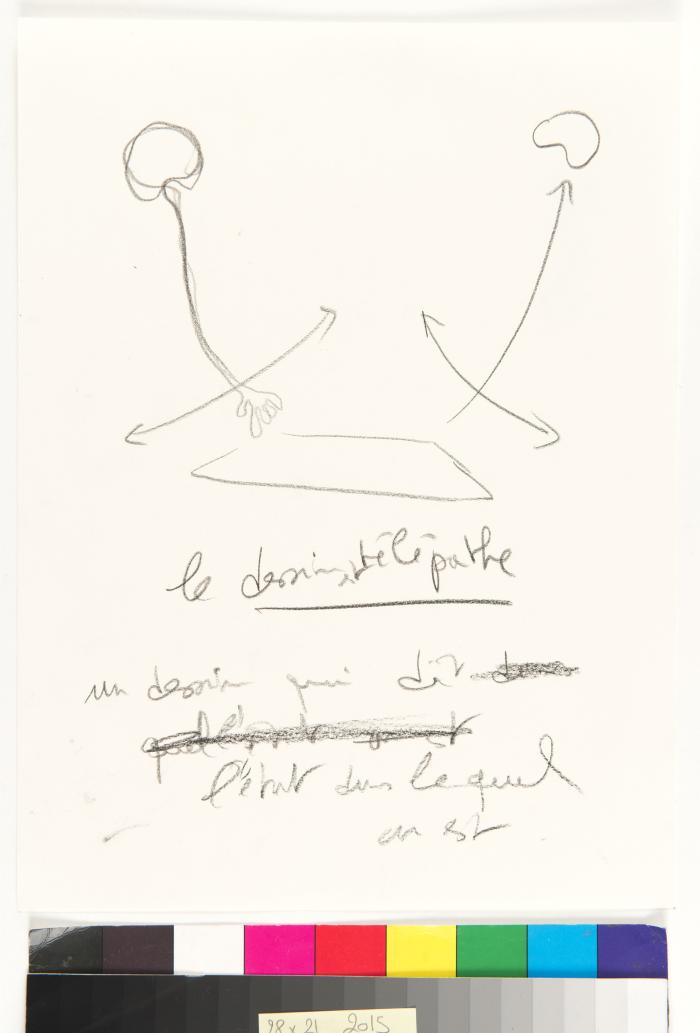 le dessin télépathe
un dessin qui dit
l'état dans lequel
on est
28 x 21 2015